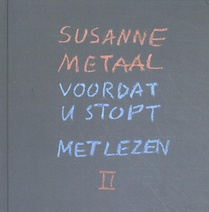 SUSANNE
METAAL
VOORDAT
U STOPT
MET LEZEN
II